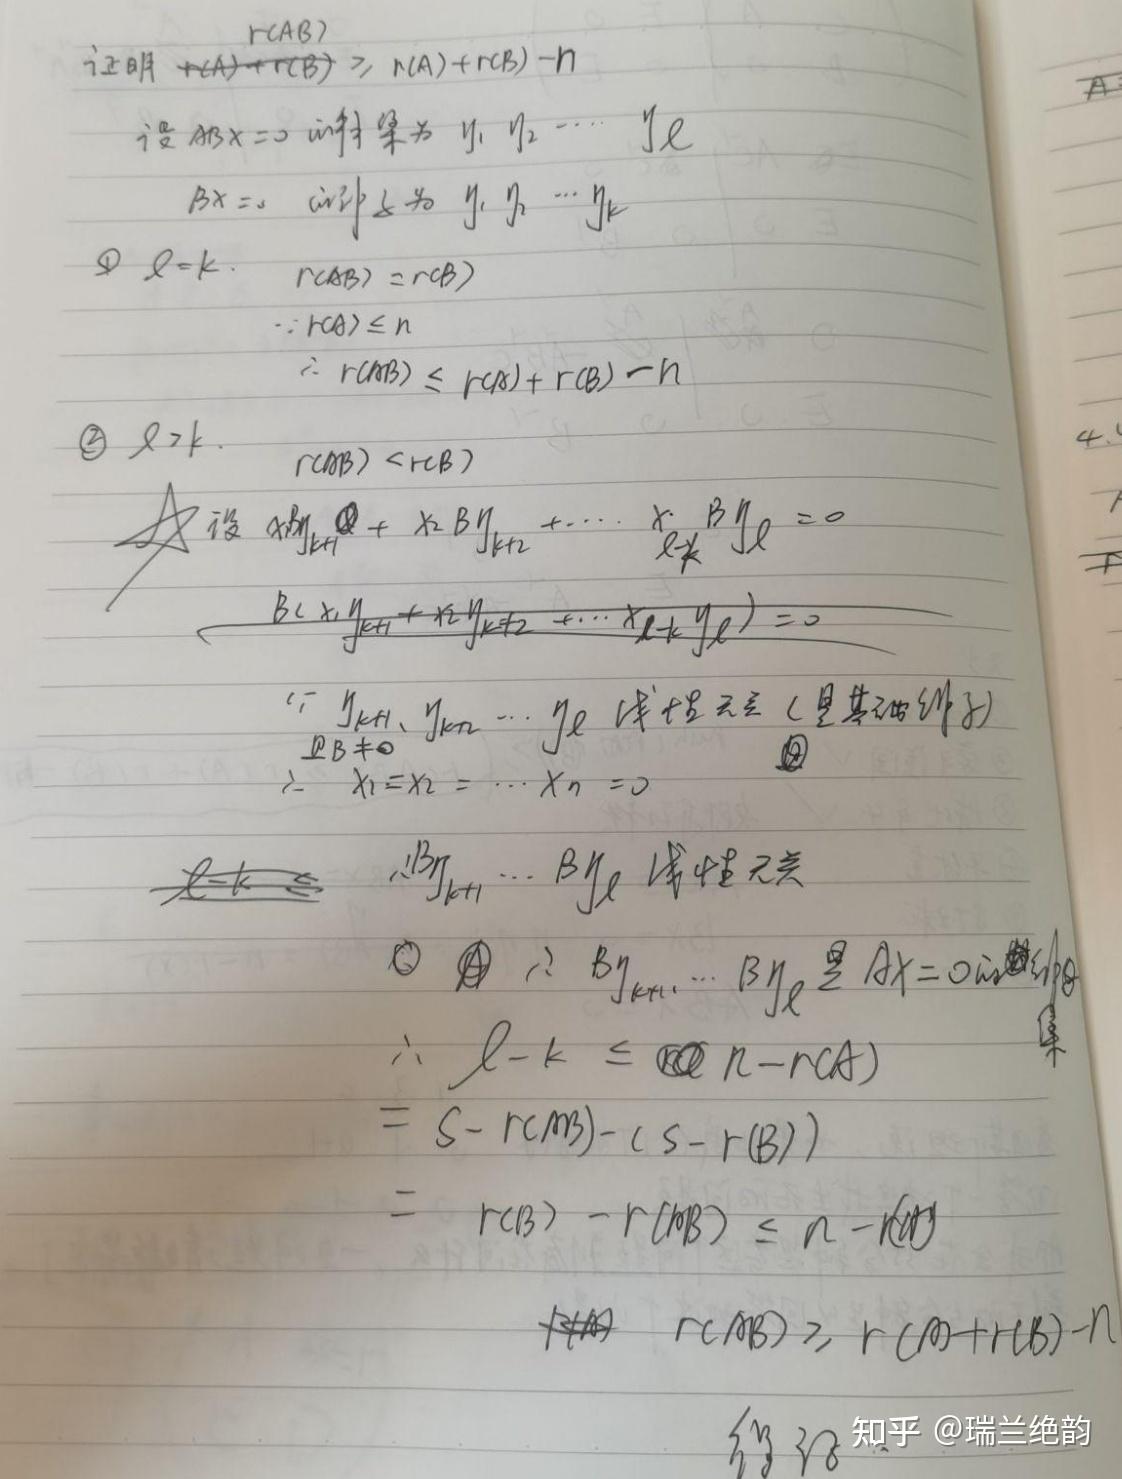 r(AB)
证明 r(A)+r(B) ≥ r(A)+r(B)-n
设 ABX=0 的解集为 η₁ η₂ ⋯⋯ ηℓ
BX=0 的解集为 η₁ η₂ ⋯ ηk
① ℓ=k. r(AB)=r(B)
∵ r(A) ≤ n
∴ r(AB) ≤ r(A)+r(B)-n
② ℓ>k.
r(AB) < r(B)
设 x₁Bηk+1 + x₂Bηk+2 + ⋯⋯ xℓ-k Bηℓ = 0
B(x₁ηk+1 + x₂ηk+2 + ⋯ xℓ-k ηℓ) = 0
∵ ηk+1、ηk+2 ⋯ ηℓ 线性无关 (是基础解系)
且B≠0
∴ x₁=x₂=⋯xn=0
ℓ-k ≤ ∴Bηk+1 ⋯ Bηℓ 线性无关
∴ Bηk+1 ⋯ Bηℓ 是 AX=0的解
集
∴ ℓ-k ≤ n-r(A)
= s-r(AB)-(s-r(B))
= r(B)-r(AB) ≤ n-r(A)
r(AB) ≥ r(A)+r(B)-n
得证
知乎 @瑞兰绝韵
4.